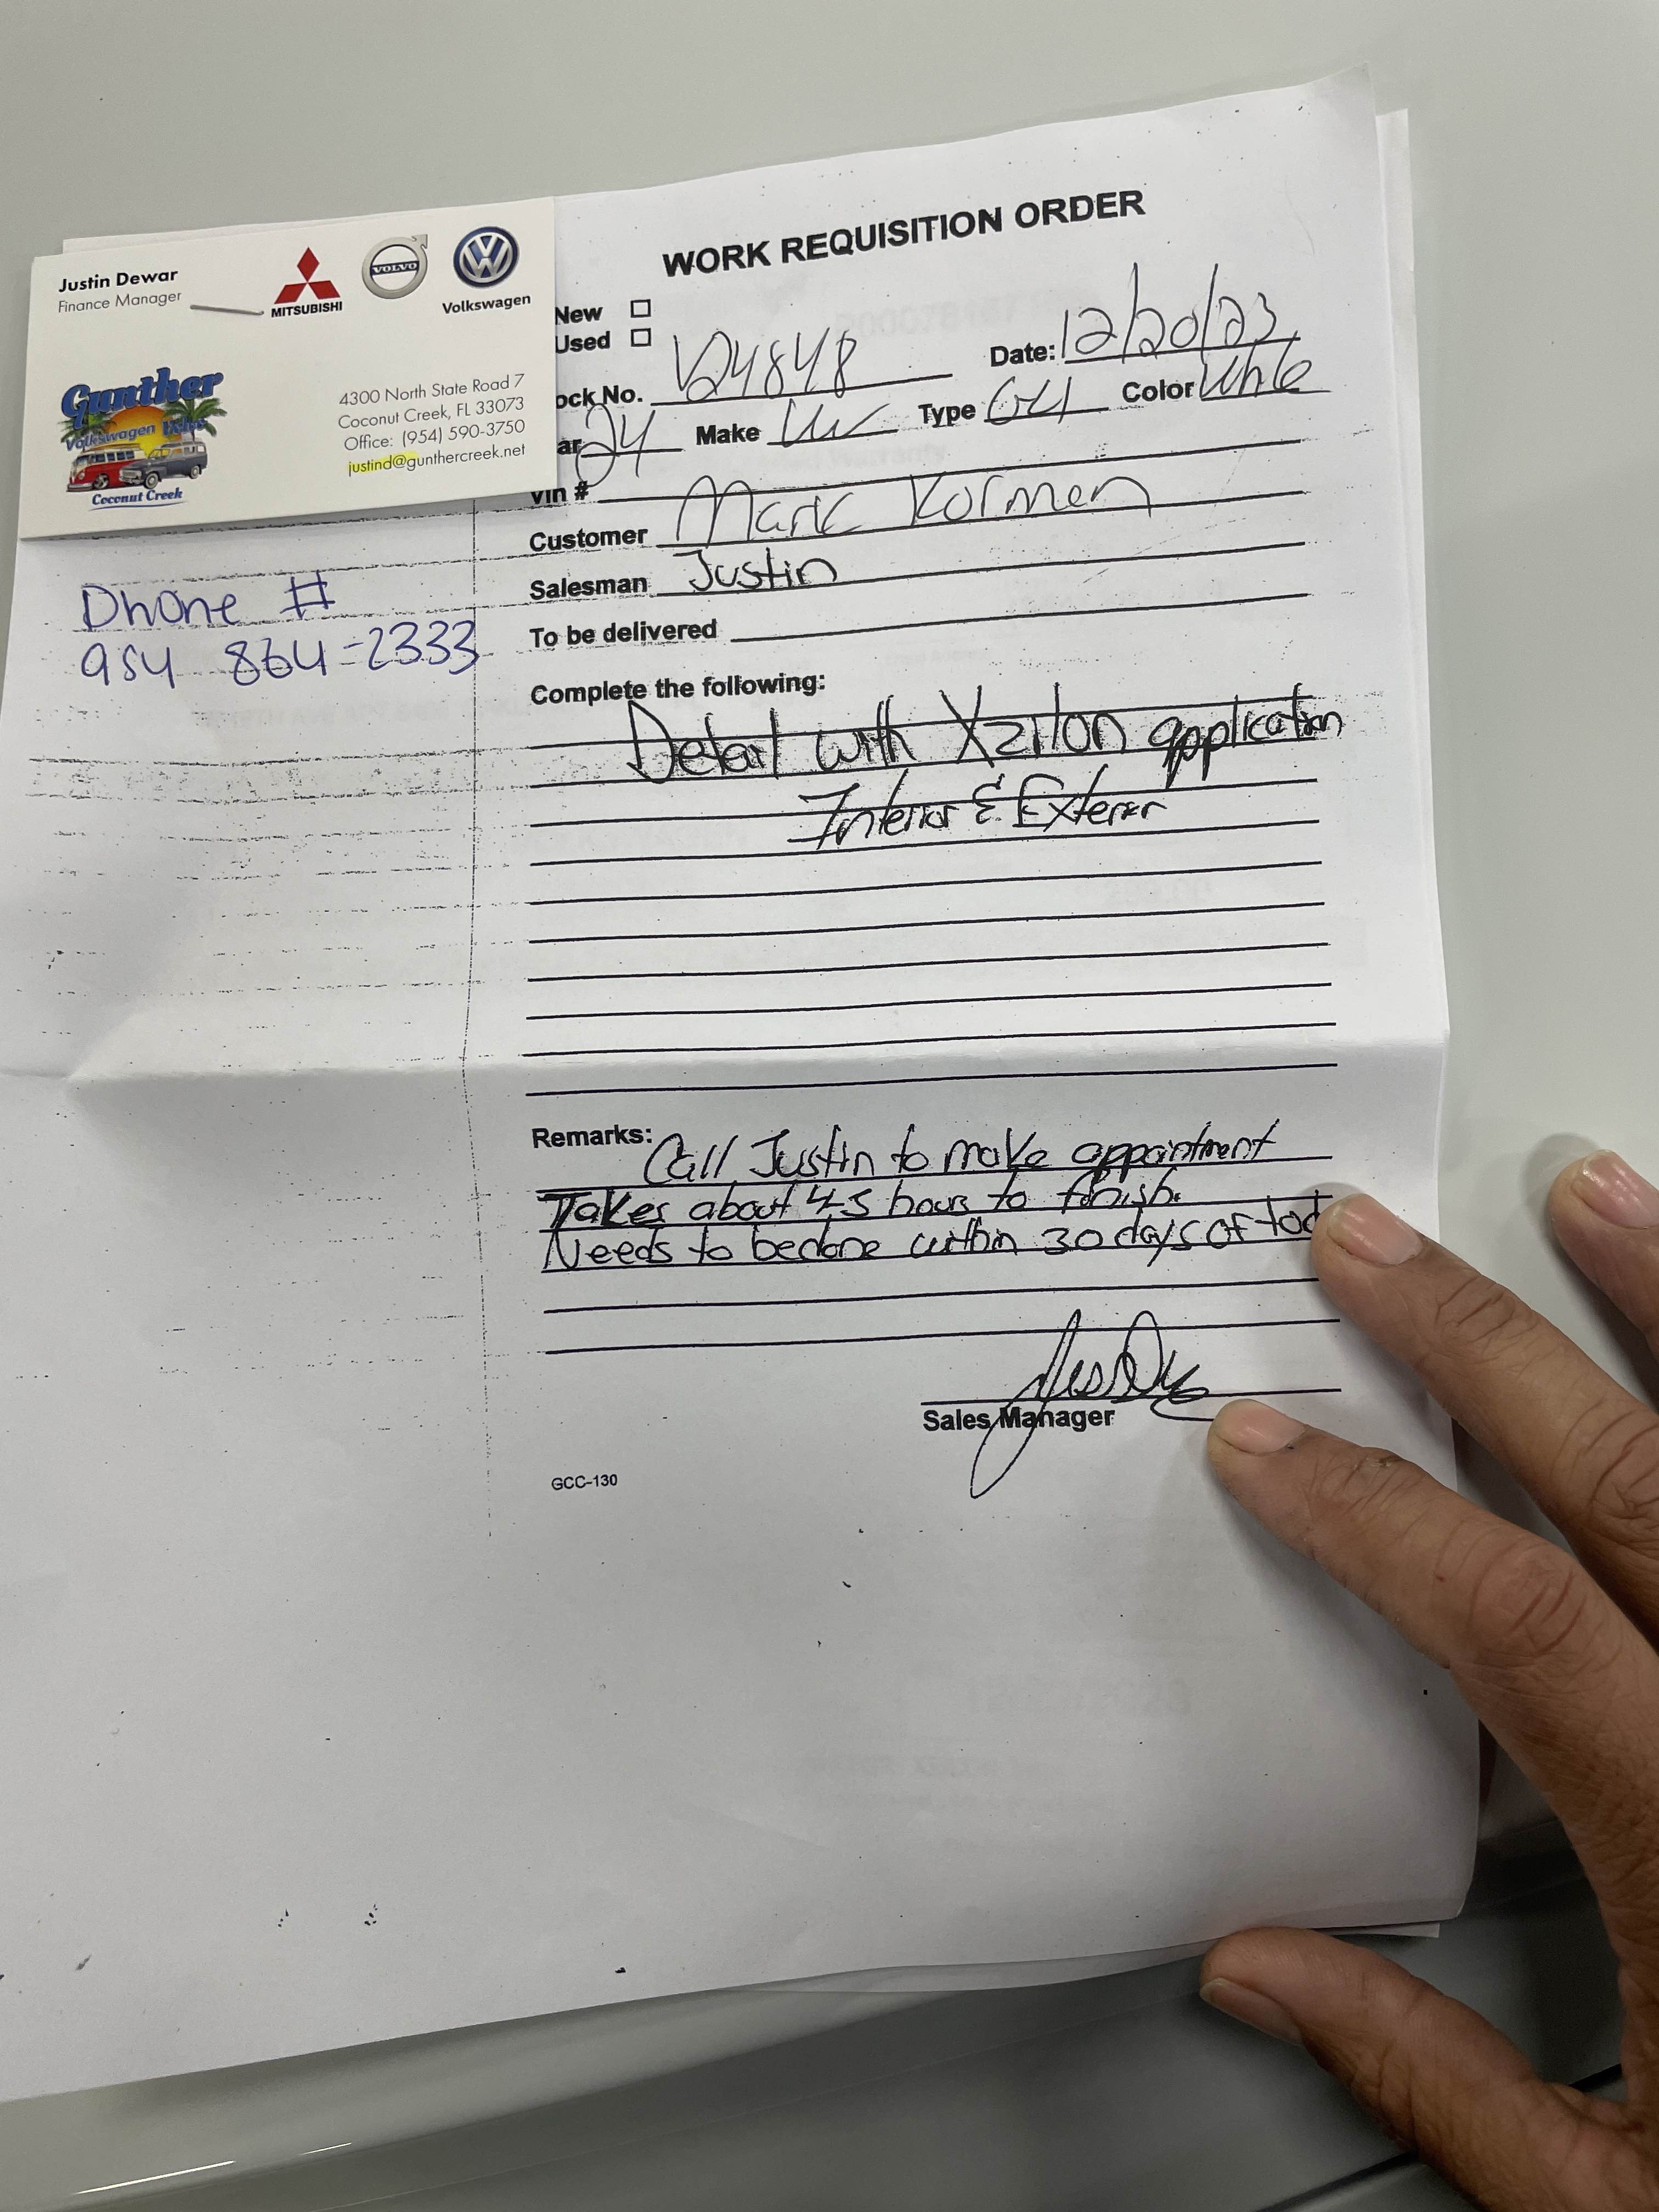 WORK REQUISITION ORDER
Justin Dewar
Finance Manager
MITSUBISHI
VOLVO
Volkswagen
Gunther
Volkswagen Volvo
Coconut Creek
4300 North State Road 7
Coconut Creek, FL 33073
Office: (954) 590-3750
justind@gunthercreek.net
New
Used
ock No. V24848 Date: 12/20/23
ar 24 Make VW Type GLI Color White
Vin #
Customer Mark Kormen
Salesman Justin
To be delivered
Phone #
954 864-2333
Complete the following:
Detail with Xzilon application
Interior & Exterior
Remarks: Call Justin to make appointment
Takes about 4-5 hours to finish.
Needs to be done within 30 days of tod
Sales Manager
GCC-130